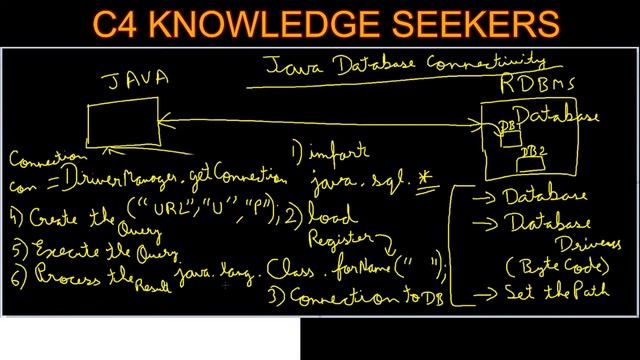 C4 KNOWLEDGE SEEKERS
Java Database Connectivity
JAVA
RDBMS
Database
DB
DB2
1) import
java.sql.*
2) load
Register
java.lang.Class.forName(" ");
3) Connection to DB
Connection
con = DriverManager.getConnection
("URL","U","P");
4) Create the Query
5) Execute the Query
6) Process the Result
→ Database
→ Database
Drivers
(Byte Code)
→ Set the Path